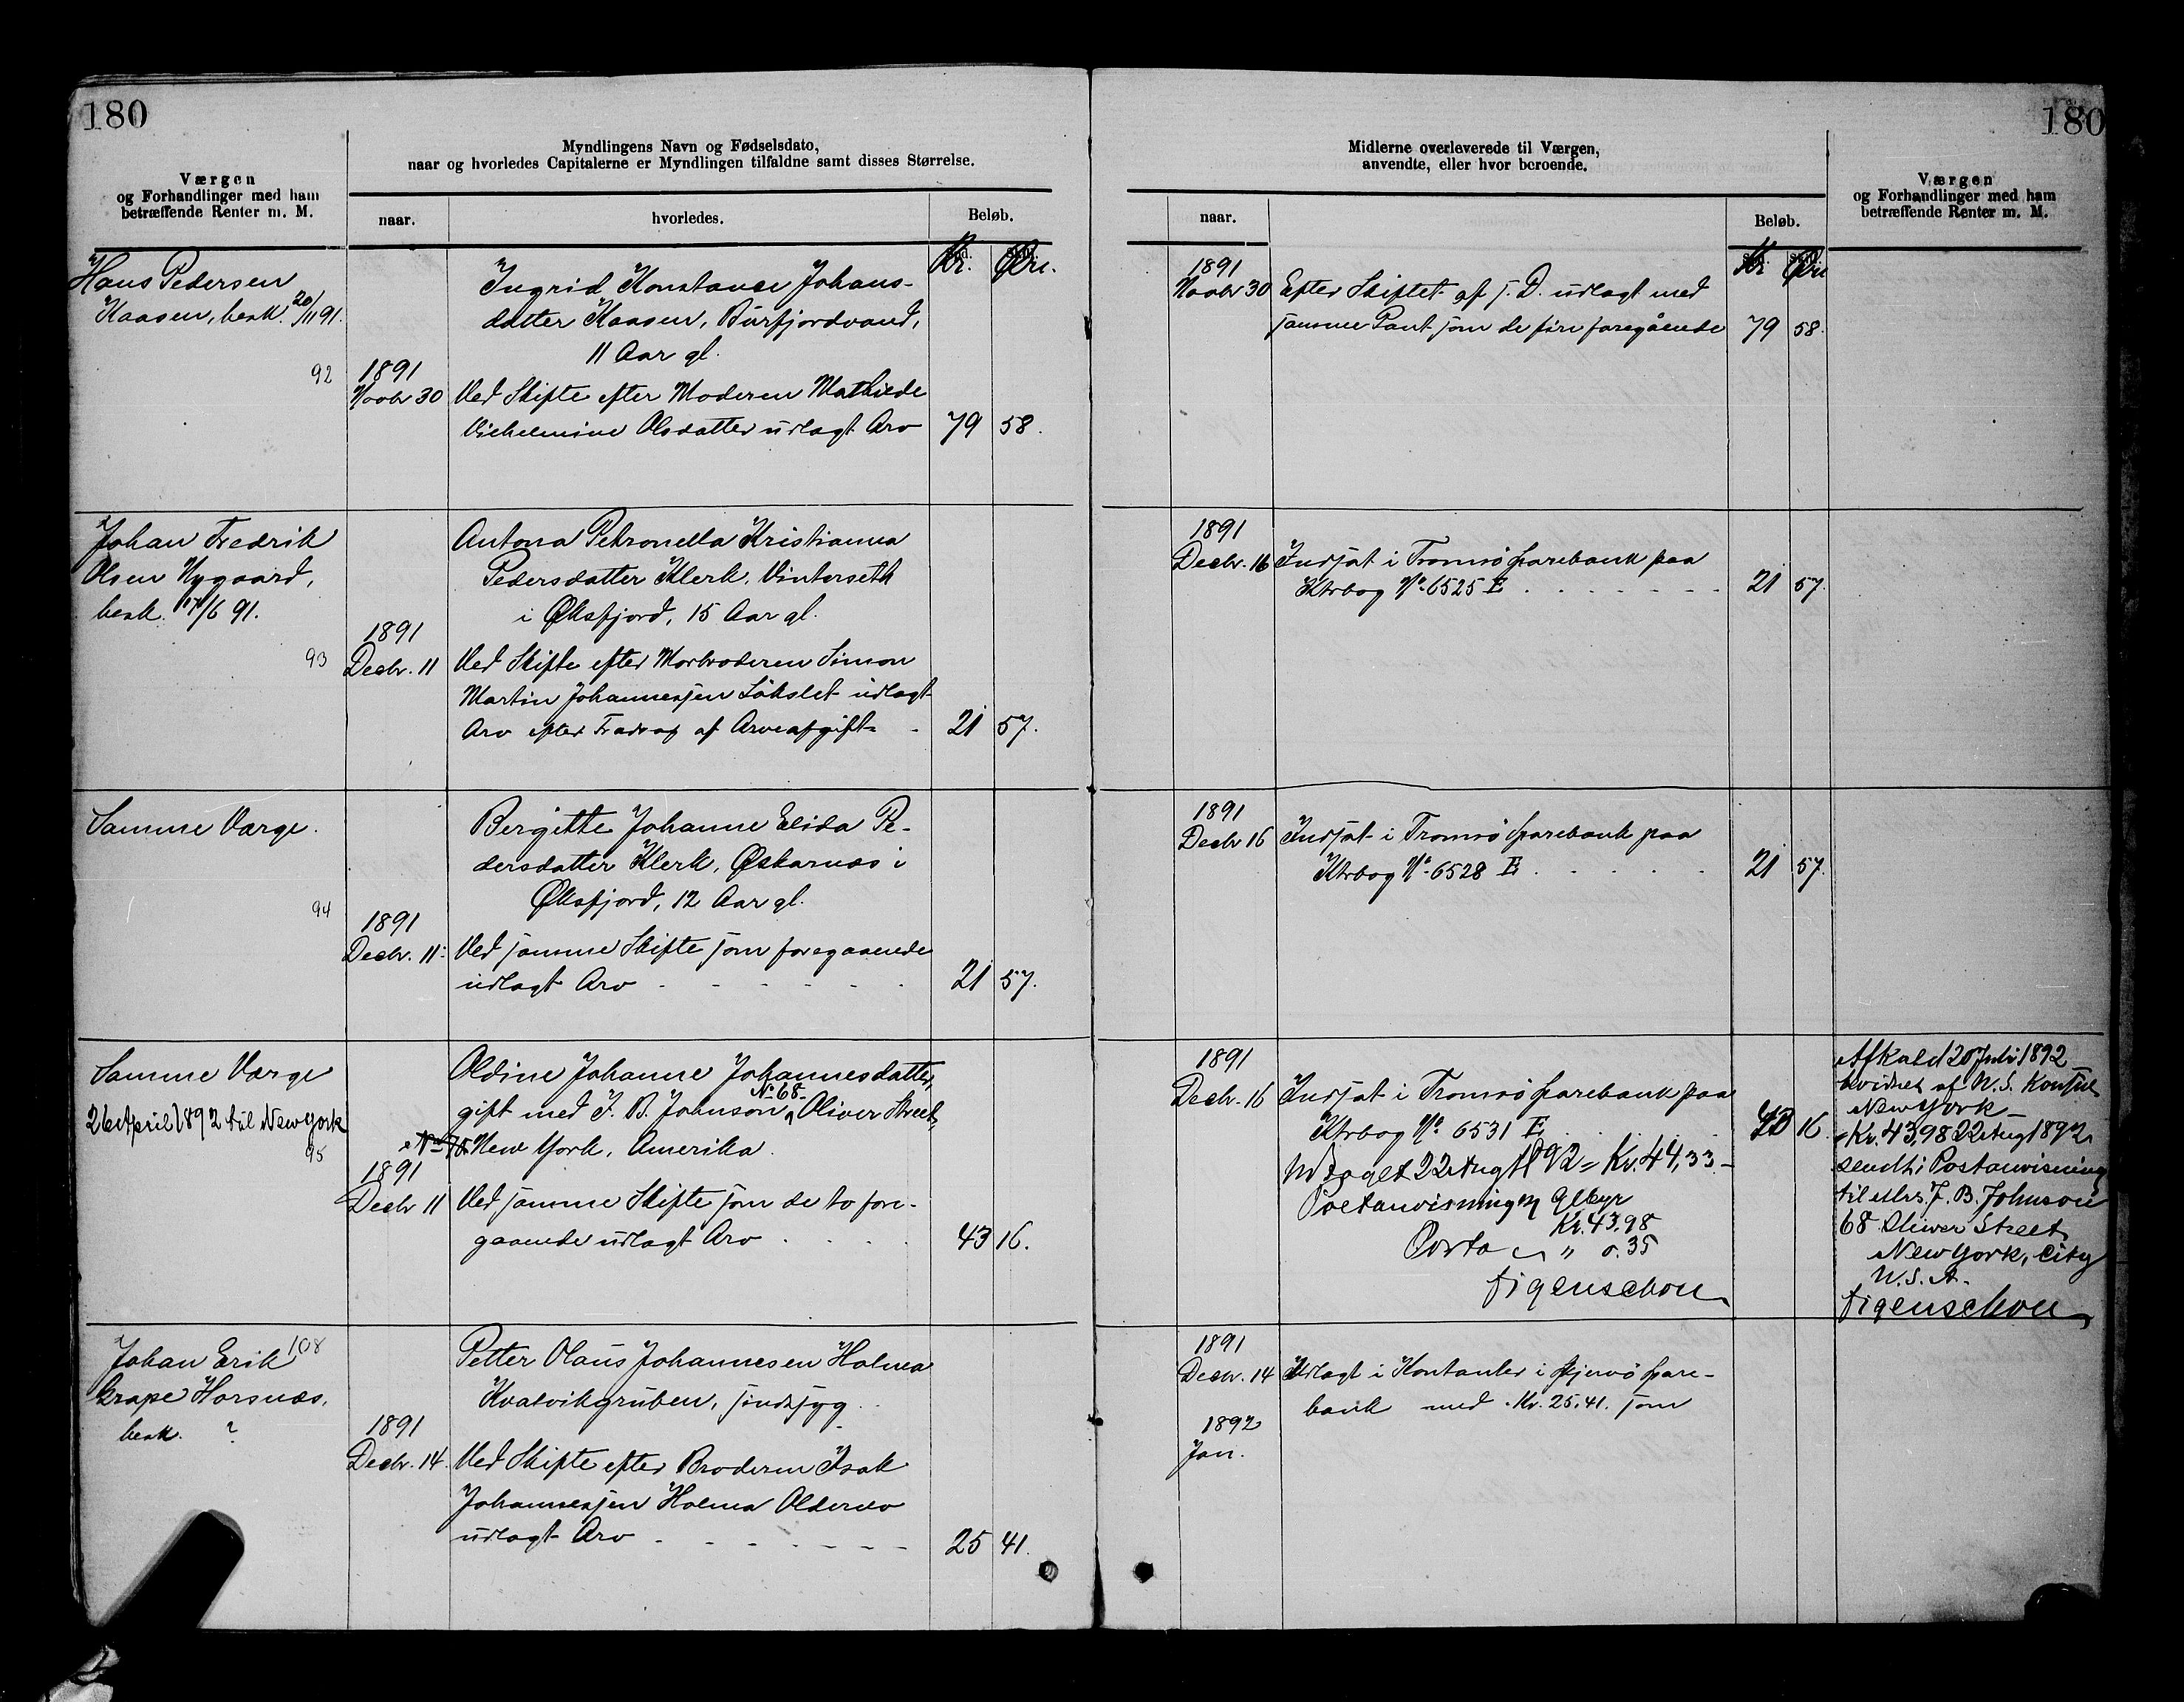 180
Værgen
og Forhandlinger med ham
betræffende Renter m. M.
Myndlingens Navn og Fødselsdato,
naar og hvorledes Capitalerne er Myndlingen tilfaldne samt disses Størrelse.
naar.
hvorledes.
Beløb.
Kr. Øre.
Hans Pedersen
Kaasen, besk. 20/11 91.
92
Ingrid Konstance Johans-
datter Kaasen, Burfjordvand,
11 Aar gl.
1891
Novbr 30 Ved Skifte efter Moderen Mathilde
Vilhelmine Olsdatter udlagt Arv 79 58.
Johan Fredrik
Olsen Nygaard,
besk. 17/6 91.
93
Antona Petronella Kristianna
Pedersdatter Klerk, Vinterseth
i Øksfjord, 15 Aar gl.
1891
Decbr. 11 Ved Skifte efter Morbroderen Simon
Martin Johannessen Løkslet udlagt
Arv efter Fradrag af Arveafgift 21 57.
Samme Værge.
94
Bergitte Johanne Elida Pe-
dersdatter Klerk, Øskarnæs i
Øksfjord, 12 Aar gl.
1891
Decbr. 11. Ved samme Skifte som foregaaende
udlagt Arv 21 57.
Samme Værge
26 April 1892 til New York
95
Oldine Johanne Johannesdatter,
No 68
gift med J. B. Johnson, Oliver Street,
New York, Amerika.
1891
Decbr 11 Ved samme Skifte som de to fore-
gaaende udlagt Arv 43 16.
Johan Erik 108
Grape Horsnæs,
besk. ?
Petter Olaus Johannesen Holma
Kvalvikgruben, sindssyg.
1891
Decbr. 14. Ved Skifte efter Broderen Isak
Johannessen Holma
udlagt Arv 25 41.
180
Midlerne overleverede til Værgen,
anvendte, eller hvor beroende.
naar.
Beløb.
Kr Øre
Værgen
og Forhandlinger med ham
betræffende Renter m. M.
1891
Novbr 30 Efter Skiftet af s. D. udlagt med
samme Pant som de fire foregående 79 58.
1891
Decbr. 16 Indsat i Tromsø Sparebank paa
Ktrbog No 6525 E 21 57.
1891
Decbr 16 Indsat i Tromsø Sparebank paa
Ktrbog No 6528 E 21 57.
1891
Decbr. 16 Indsat i Tromsø Sparebank paa
Ktrbog No 6531 E 43 16.
Udtaget 22 Aug 1892 = Kr. 44,33
Postanvisning
Kr. 43.98
Porto " 0.35
Figenschou
Afkald 20 Juli 1892
bevidnet af U. S. Konsul
New York
Kr. 43,98 22 Aug 1892
sendt i Postanvisning
til Mrs. J. B. Johnson
68 Oliver Street
New York, City
U. S. A.
Figenschou
1891
Decbr. 14 Udlagt i Kontanter i Skjervø Spare-
bank med Kr. 25,41. som
1892
Jan.